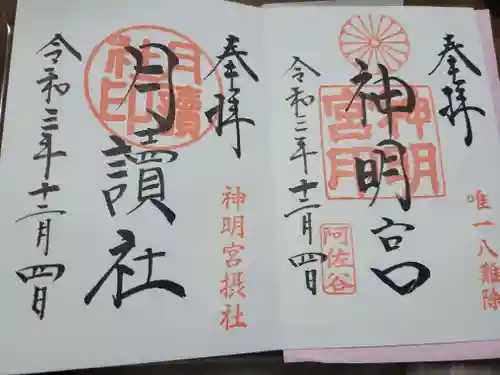 奉拝
唯一八難除
神明宮
神明宮印
阿佐谷
令和三年十二月四日
奉拝
神明宮摂社
月讀社
月讀社印
令和三年十二月四日